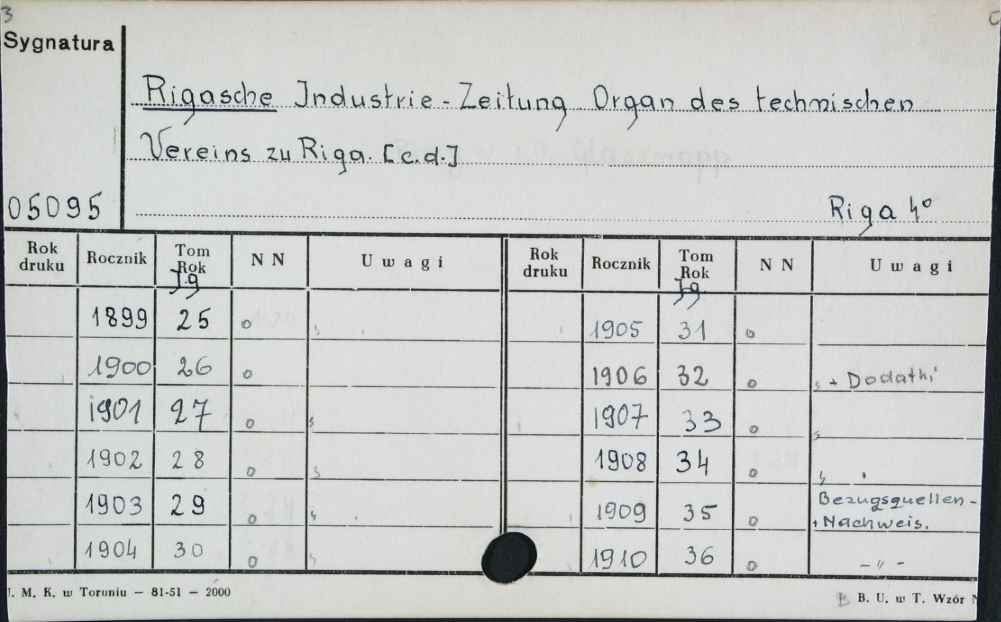 3
Sygnatura
Rigasche Industrie-Zeitung Organ des technischen
Vereins zu Riga. [c.d.]
05095
Riga 4°
Rok druku Rocznik Tom Rok Jg N N Uwagi Rok druku Rocznik Tom Rok Jg N N Uwagi
1899 25 o 1905 31 o
1900 26 o 1906 32 o + Dodatki
1901 27 o 1907 33 o
1902 28 o 1908 34 o
1903 29 o 1909 35 o Bezugsquellen-
+ Nachweis.
1904 30 o 1910 36 o -"-
. M. K. w Toruniu — 81-51 — 2000
B. U. w T. Wzór